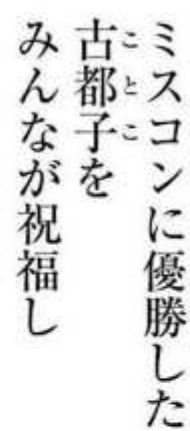 ミスコンに優勝した
古都子を
みんなが祝福し